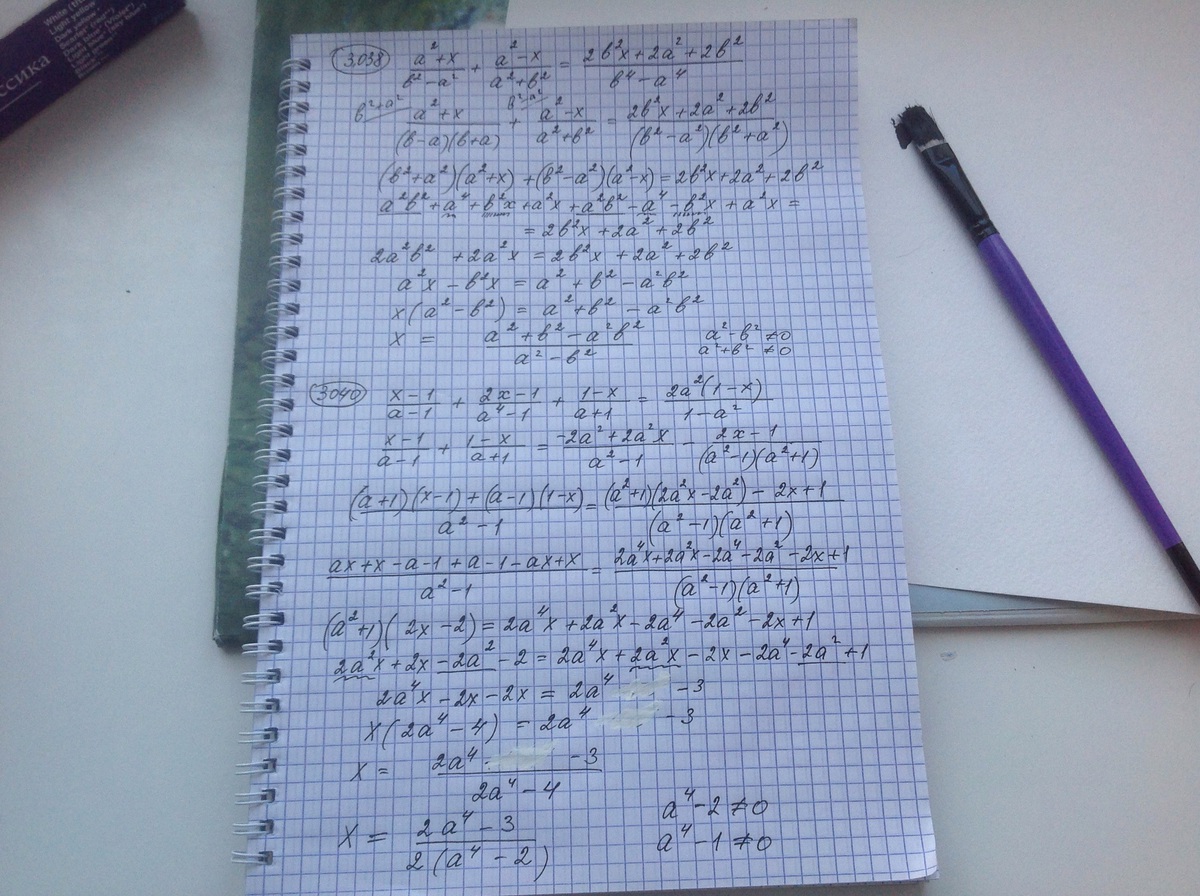 White (
Light yellow
ссика
3038 (a²+x)/(в²-a²) + (a²-x)/(a²+в²) = (2в²x+2a²+2в²)/(в⁴-a⁴)
в²+a² (a²+x)/((в-a)(в+a)) + в²-a² (a²-x)/(a²+в²) = (2в²x+2a²+2в²)/((в²-a²)(в²+a²))
(в²+a²)(a²+x)+(в²-a²)(a²-x)=2в²x+2a²+2в²
a²в²+a⁴+в²x+a²x+a²в²-a⁴-в²x+a²x=
=2в²x+2a²+2в²
2a²в²+2a²x=2в²x+2a²+2в²
a²x-в²x=a²+в²-a²в²
x(a²-в²)=a²+в²-a²в²
x = (a²+в²-a²в²)/(a²-в²) a²-в²≠0
a²+в²≠0
3040 (x-1)/(a-1) + (2x-1)/(a⁴-1) + (1-x)/(a+1) = 2a²(1-x)/(1-a²)
(x-1)/(a-1) + (1-x)/(a+1) = (-2a²+2a²x)/(a²-1) - (2x-1)/((a²-1)(a²+1))
((a+1)(x-1)+(a-1)(1-x))/(a²-1) = ((a²+1)(2a²x-2a²)-2x+1)/((a²-1)(a²+1))
(ax+x-a-1+a-1-ax+x)/(a²-1) = (2a⁴x+2a²x-2a⁴-2a²-2x+1)/((a²-1)(a²+1))
(a²+1)(2x-2)=2a⁴x+2a²x-2a⁴-2a²-2x+1
2a²x+2x-2a²-2=2a⁴x+2a²x-2x-2a⁴-2a²+1
2a⁴x-2x-2x=2a⁴ -3
x(2a⁴-4)=2a⁴ -3
x = (2a⁴- -3)/(2a⁴-4)
x = (2a⁴-3)/(2(a⁴-2)) a⁴-2≠0
a⁴-1≠0